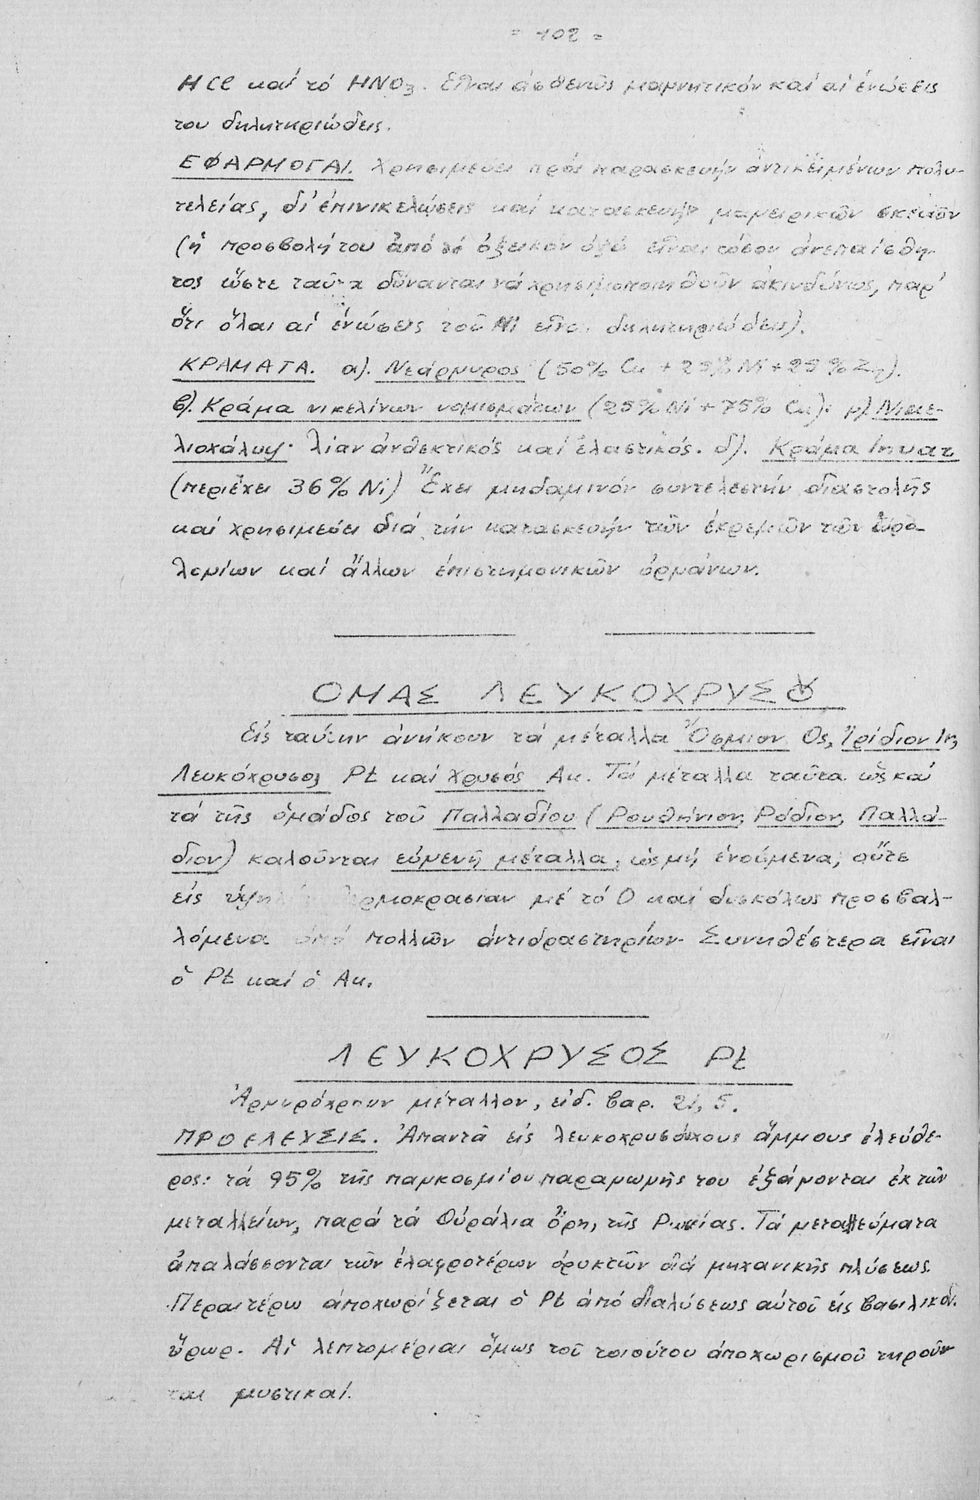 = 102 =
HCl καί τό HNO3. Εἶναι ἀσθενῶς μαγνητικόν καί αἱ ἑνώσεις
του δηλητηριώδεις.
ΕΦΑΡΜΟΓΑΙ. Χρησιμεύει πρός παρασκευήν ἀντικειμένων πολυ-
τελείας, δι' ἐπινικελώσεις καί κατασκευήν μαγειρικῶν σκευῶν
(ἡ προσβολή του ἀπό τό ὀξεικόν ὀξύ εἶναι τόσον ἀνεπαίσθη-
τος ὥστε ταῦτα δύνανται νά χρησιμοποιηθοῦν ἀκινδύνως, παρ'
ὅτι ὅλαι αἱ ἑνώσεις τοῦ Ni εἶναι δηλητηριώδεις).
ΚΡΑΜΑΤΑ. α). Νεάργυρος (50% Cu + 25% Ni + 25% Zn).
β). Κρᾶμα νικελίνων νομισμάτων (25% Ni + 75% Cu): γ) Νικε-
λιοχάλυψ· λίαν ἀνθεκτικός καί ἐλαστικός. δ). Κρᾶμα Ινvar
(περιέχει 36% Ni) Ἔχει μηδαμινόν συντελεστήν διαστολῆς
καί χρησιμεύει διά τήν κατασκευήν τῶν ἐκρεμῶν τῶν ὡρο-
λογίων καί ἄλλων ἐπιστημονικῶν ὀργάνων.
ΟΜΑΣ ΛΕΥΚΟΧΡΥΣΟΥ
Εἰς ταύτην ἀνήκουν τά μέταλλα Ὄσμιον Os, Ἰρίδιον Ir,
Λευκόχρυσος Pt καί χρυσός Au. Τά μέταλλα ταῦτα ὡς καί
τά τῆς ὁμάδος τοῦ Παλλαδίου (Ρουθήνιον, Ρόδιον, Παλλά-
διον) καλοῦνται εὐγενῆ μέταλλα, ὡς μή ἑνούμενα, οὔτε
εἰς ὑψηλήν θερμοκρασίαν μέ τό O καί δυσκόλως προσβαλ-
λόμενα ὑπό πολλῶν ἀντιδραστηρίων. Συνηθέστερα εἶναι
ὁ Pt καί ὁ Au.
ΛΕΥΚΟΧΡΥΣΟΣ Pt
Ἀργυρόχρουν μέταλλον, εἰδ. βαρ. 21,5.
ΠΡΟΕΛΕΥΣΙΣ. Ἀπαντᾶ εἰς λευκοχρυσούχους ἄμμους ἐλεύθε-
ρος: τά 95% τῆς παγκοσμίου παραγωγῆς του ἐξάγονται ἐκ τῶν
μεταλλείων, παρά τά Οὐράλια ὄρη, τῆς Ρωσίας. Τά μεταλλεύματα
ἀπαλάσσονται τῶν ἐλαφροτέρων ὀρυκτῶν διά μηχανικῆς πλύσεως.
Περαιτέρω ἀποχωρίζεται ὁ Pt ἀπό διαλύσεως αὐτοῦ εἰς βασιλικόν.
ὕδωρ. Αἱ λεπτομέρειαι ὅμως τοῦ τοιούτου ἀποχωρισμοῦ τηροῦν
ται μυστικαί.